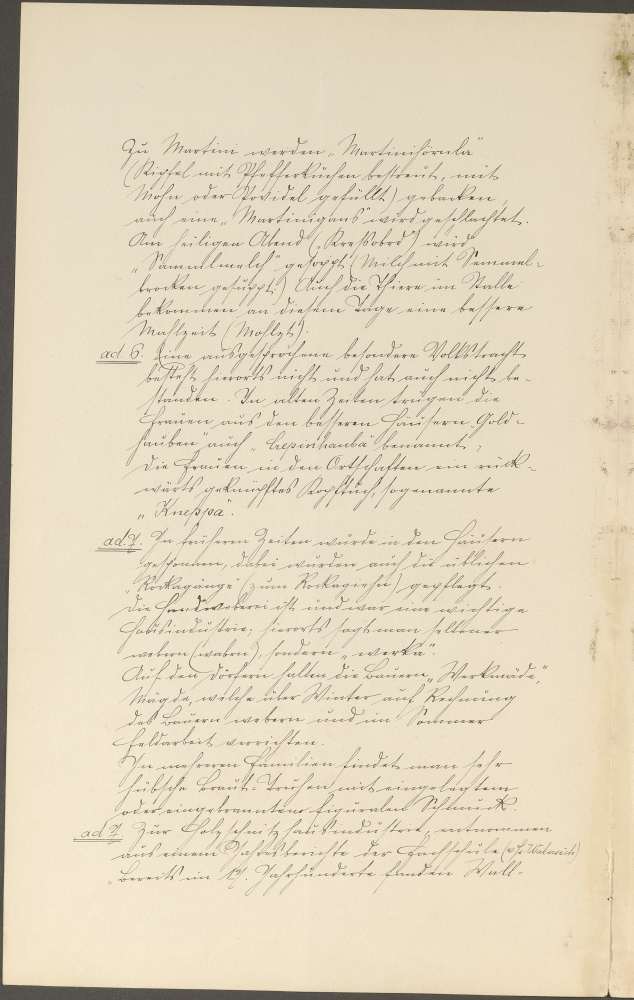 Zu Martin werden „Martinihörnla“
(Kipfel mit Pfefferkuchen bestreut, mit
Mohn oder Powidel gefüllt) gebacken,
auch eine „Martinigans“ wird geschlachtet.
Am heiligen Abend („Kreßobed“) wird
„Sammlmelch“ gesoppt (Milch mit Semmel-
brocken gesuppt.) Auch die Thiere im Stalle
bekommen an diesem Tage eine bessere
Mahlzeit (Mohlzt).
ad 6. Eine ausgesprochene besondere Volkstracht
besteht hierorts nicht und hat auch nicht be-
standen. In alten Zeiten trugen die
Frauen aus den besseren Häusern „Gold-
hauben“ auch benannt,
die Frauen in den Ortschaften ein rück-
wärts geknüpftes Kopftuch, sogenannte
„Kneppa“.
ad 7. In früheren Zeiten wurde in den Häusern
gesponnen, dabei wurden auch die üblichen
„Rockagänge“ (zum Rockagiehn) gepflegt.
Die Handweberei ist und war eine wichtige
Hausindustrie; hierorts sagt man seltener
webern (wabrn), sondern „werka“.
Auf den Dörfern halten die Bauern „Werkmäde“,
Mägde, welche über Winter auf Rechnung
des Bauern webern und im Sommer
Feldarbeit verrichten.
In mehreren Familien findet man sehr
hübsche Braut-Truhen mit eingelegtem
oder eingebranntem figuralen Schmuck.
ad 7. Zur Holzschnitzhausindustrie, entnommen
aus einem Jahresberichte der Fachschule
Bereits im 17. Jahrhunderte fanden Wall-